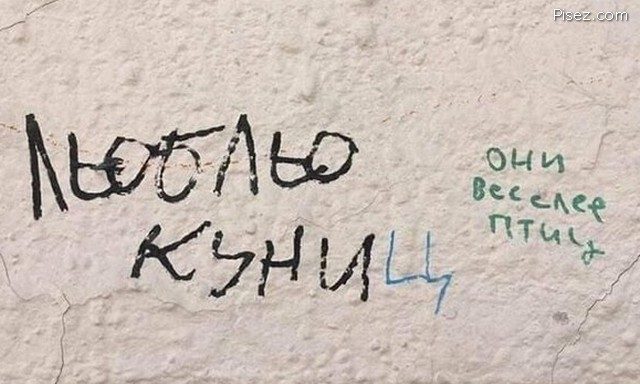 Pisez.com
ЛЬОБЛЬО
КУНИЦ
ОНИ
Веселее
ПТИЦ